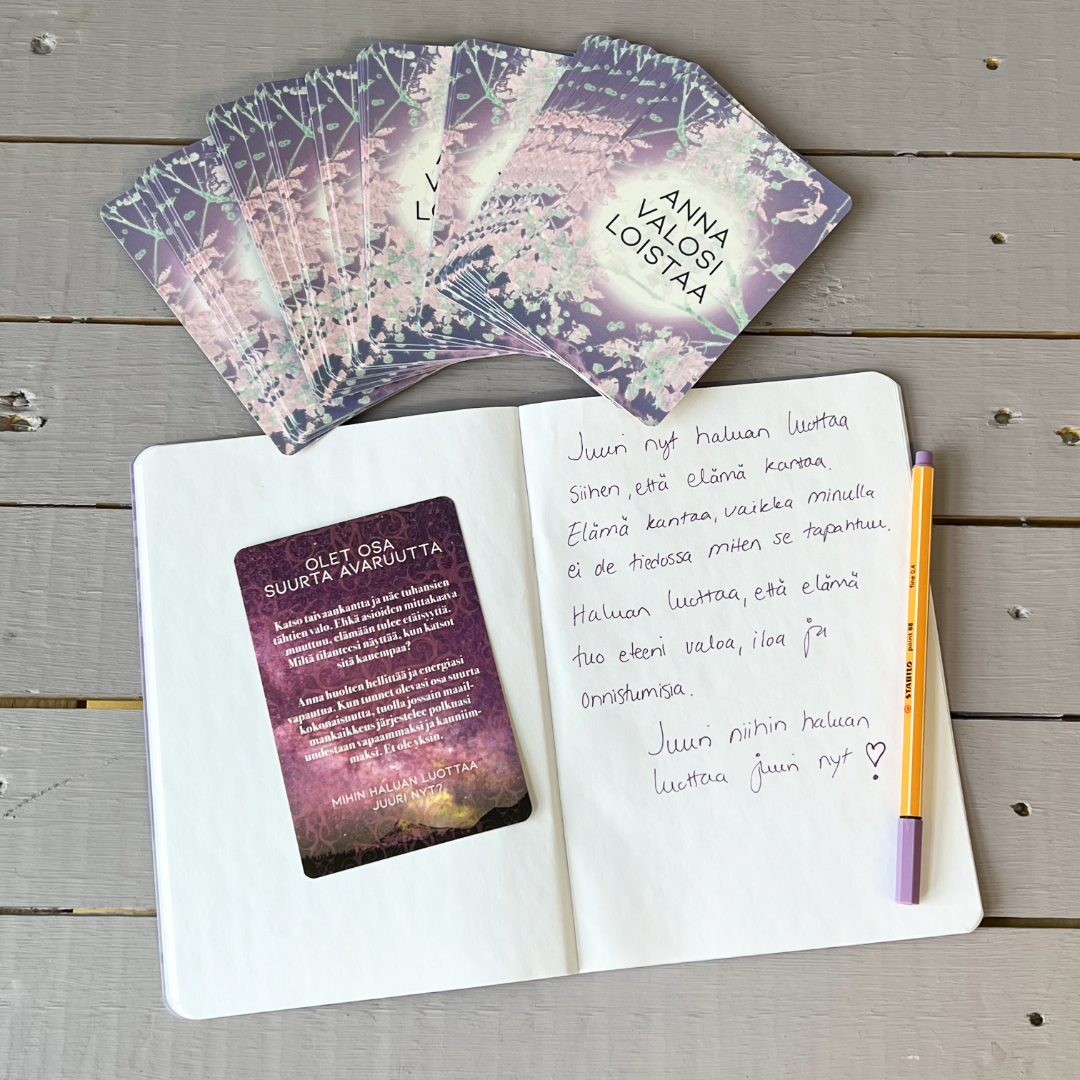 ANNA
VALOSI
LOISTAA
OLET OSA
SUURTA AVARUUTTA
Katso taivaankantta ja näe tuhansien
tähtien valo. Ehkä asioiden mittakaava
muuttuu, elämään tulee etäisyyttä.
Miltä tilanteesi näyttää, kun katsot
sitä kauempaa?
Anna huolten hellittää ja energiasi
vapautua. Kun tunnet olevasi osa suurta
kokonaisuutta, tuolla jossain maail-
mankaikkeus järjestelee polkuasi
uudestaan vapaammaksi ja kauniim-
maksi. Et ole yksin.
MIHIN HALUAN LUOTTAA
JUURI NYT?
Juuri nyt haluan luottaa
siihen, että elämä kantaa.
Elämä kantaa, vaikka minulla
ei ole tiedossa miten se tapahtuu.
Haluan luottaa, että elämä
tuo eteeni valoa, iloa ja
onnistumisia.
Juuri niihin haluan
luottaa juuri nyt
STABILO point 88 fine 0,4